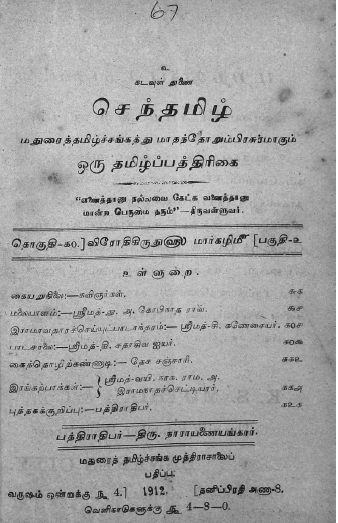 67
உ
கடவுள் துணை
செந்தமிழ்
மதுரைத்தமிழ்ச்சங்கத்து மாதந்தோறும்பிரசுரமாகும்
ஒரு தமிழ்ப்பத்திரிகை
"எனைத்தானு நல்லவை கேட்க வனைத்தானு
மான்ற பெருமை தரும்"—திருவள்ளுவர்.
தொகுதி-க0.] விரோதிகிருது௵ மார்கழி௴ [பகுதி-உ
உள்ளுறை.
கையறுநிலை:—கவிஞர்கள்,
மலைபானம்:—ஸ்ரீமத்-மு. அ. கோபிநாத ராவ்.
இராமாவதாரச்செய்யுட்பாடாந்தரம்:—ஸ்ரீமத்-சி. கணேசையர்.
பாடசாலை:—ஸ்ரீமத்-தி. சதாசிவ ஐயர்.
கைத்தொழிற்கண்ணடி:—தேச சஞ்சாரி.
இரங்கற்பாக்கள்:—{ஸ்ரீமத்-வயி. நாக. ராம. அ.
இராமநாதச்செட்டியார்,
புத்தகக்குறிப்பு:—பத்திராதிபர்,
பத்திராதிபர்—திரு. நாராயணையங்கார்.
மதுரைத் தமிழ்ச்சங்க முத்திராசாலைப்
பதிப்பு:
வருஷம் ஒன்றுக்கு ரூ 4.] 1912. [தனிப்பிரதி அணா-8.
வெளிநாடுகளுக்கு ரூ 4—8—0.